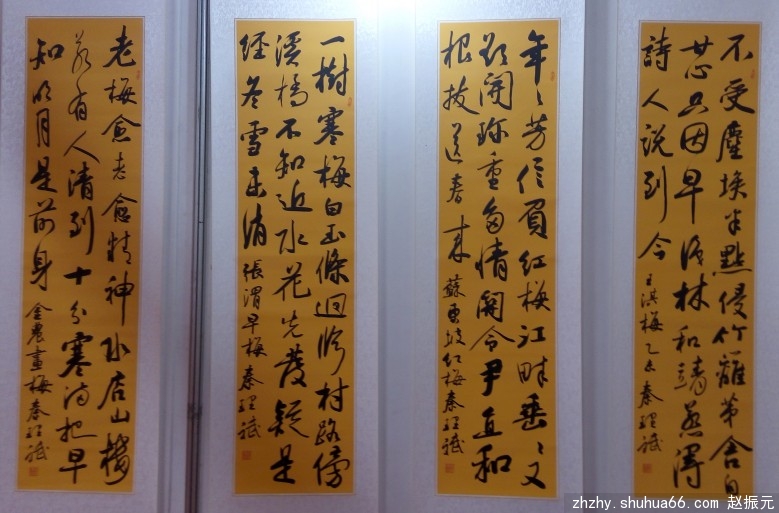 不受塵埃半點侵竹籬茅舍自
甘心只因早識林和靖惹得
詩人說到今 王淇梅 乙未 秦理斌
年年芳信負紅梅江畔垂垂又
欲開珍重多情關令尹直和
根拔送春來 蘇東坡紅梅 秦理斌
一樹寒梅白玉條迴臨村路傍
溪橋不知近水花先發疑是
經冬雪未消 張渭早梅 秦理斌
老梅愈老愈精神水店山樓
若有人清到十分寒滿把早
知明月是前身 金農畫梅 秦理斌
zhzhy.shuhua66.com 赵振元